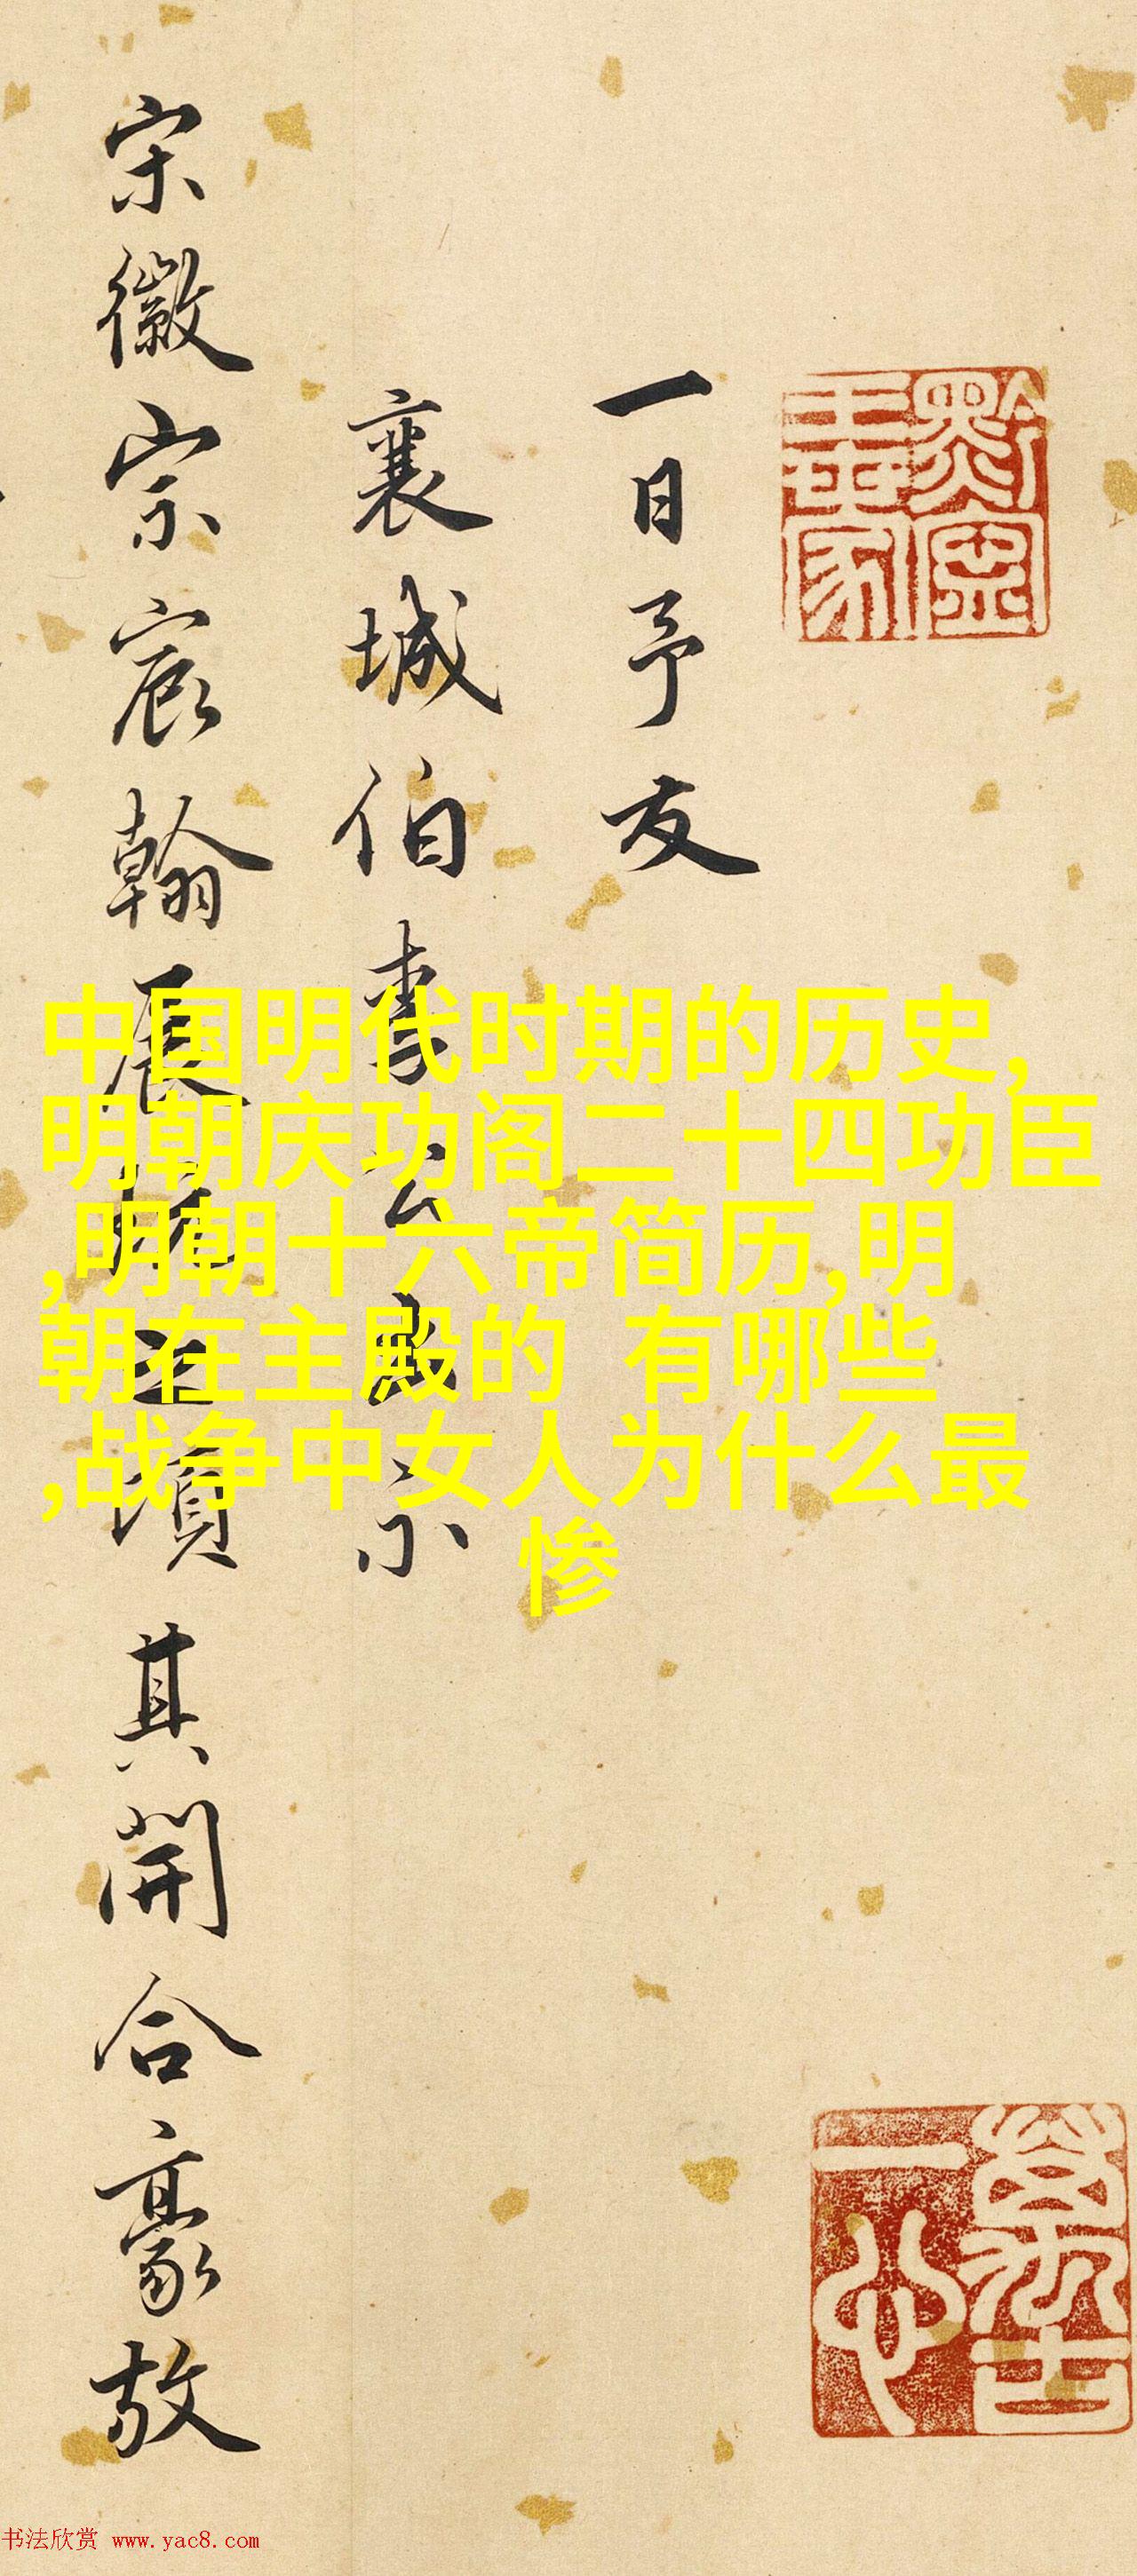 一日予友
襄城伯李公出示
宋徽宗宸翰展玩之頃其開合豪放
中国明代时期的历史,
明朝庆功阁二十四功臣
,明朝十六帝简历,明
朝在主殿的 有哪些
,战争中女人为什么最
惨
书法欣赏 www.yac8.com